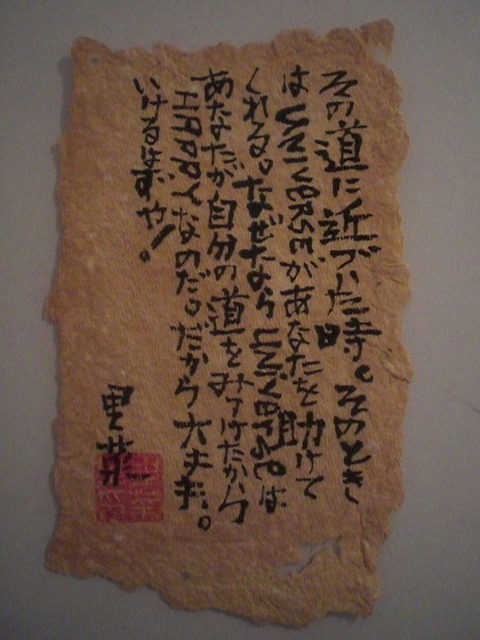 その道に近づいた時。そのとき
はUNIVERSEがあなたを助けて
くれる。なぜなら UNIVERSEは
あなたが自分の道をみつけたから
HAPPYなのだ。だから大丈夫。
いけるはずや!。
里